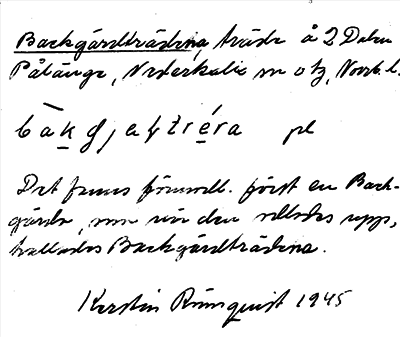 Backgårdträdena, träde å 2 Dalen
Pålänge, Nederkalix sn o tg, Norrb. l.
bākgjaʃtréra pl
Det fanns förmodl. först en Back-
gärda, men när den odlades upp,
kallades Backgårdträdena.
Kerstin Rönnquist 1945